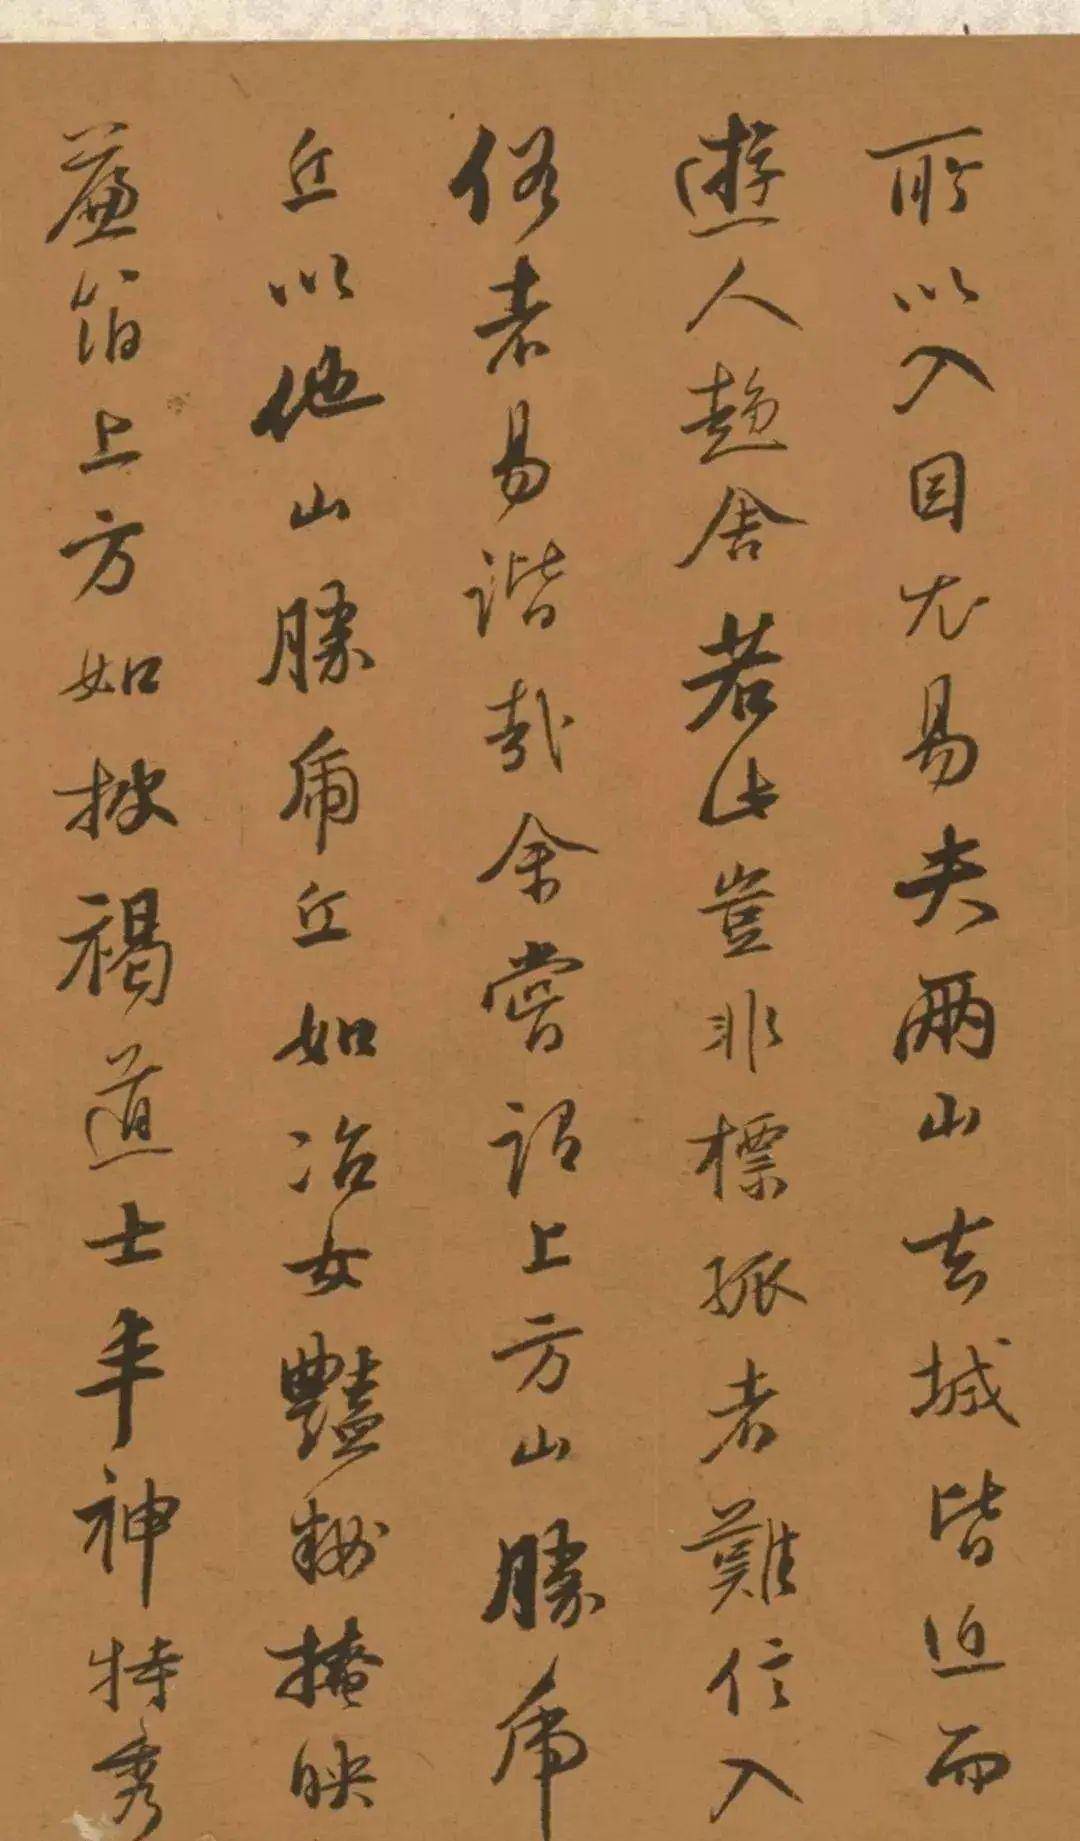 所以入目尤易夫兩山去城皆迫而
遊人趨舍若此豈非標孤者難信入
俗者易諧哉余嘗謂上方山勝虎
丘以他山勝虎丘如冶女艷粧掩映
簾箔上方如披褐道士丰神特秀